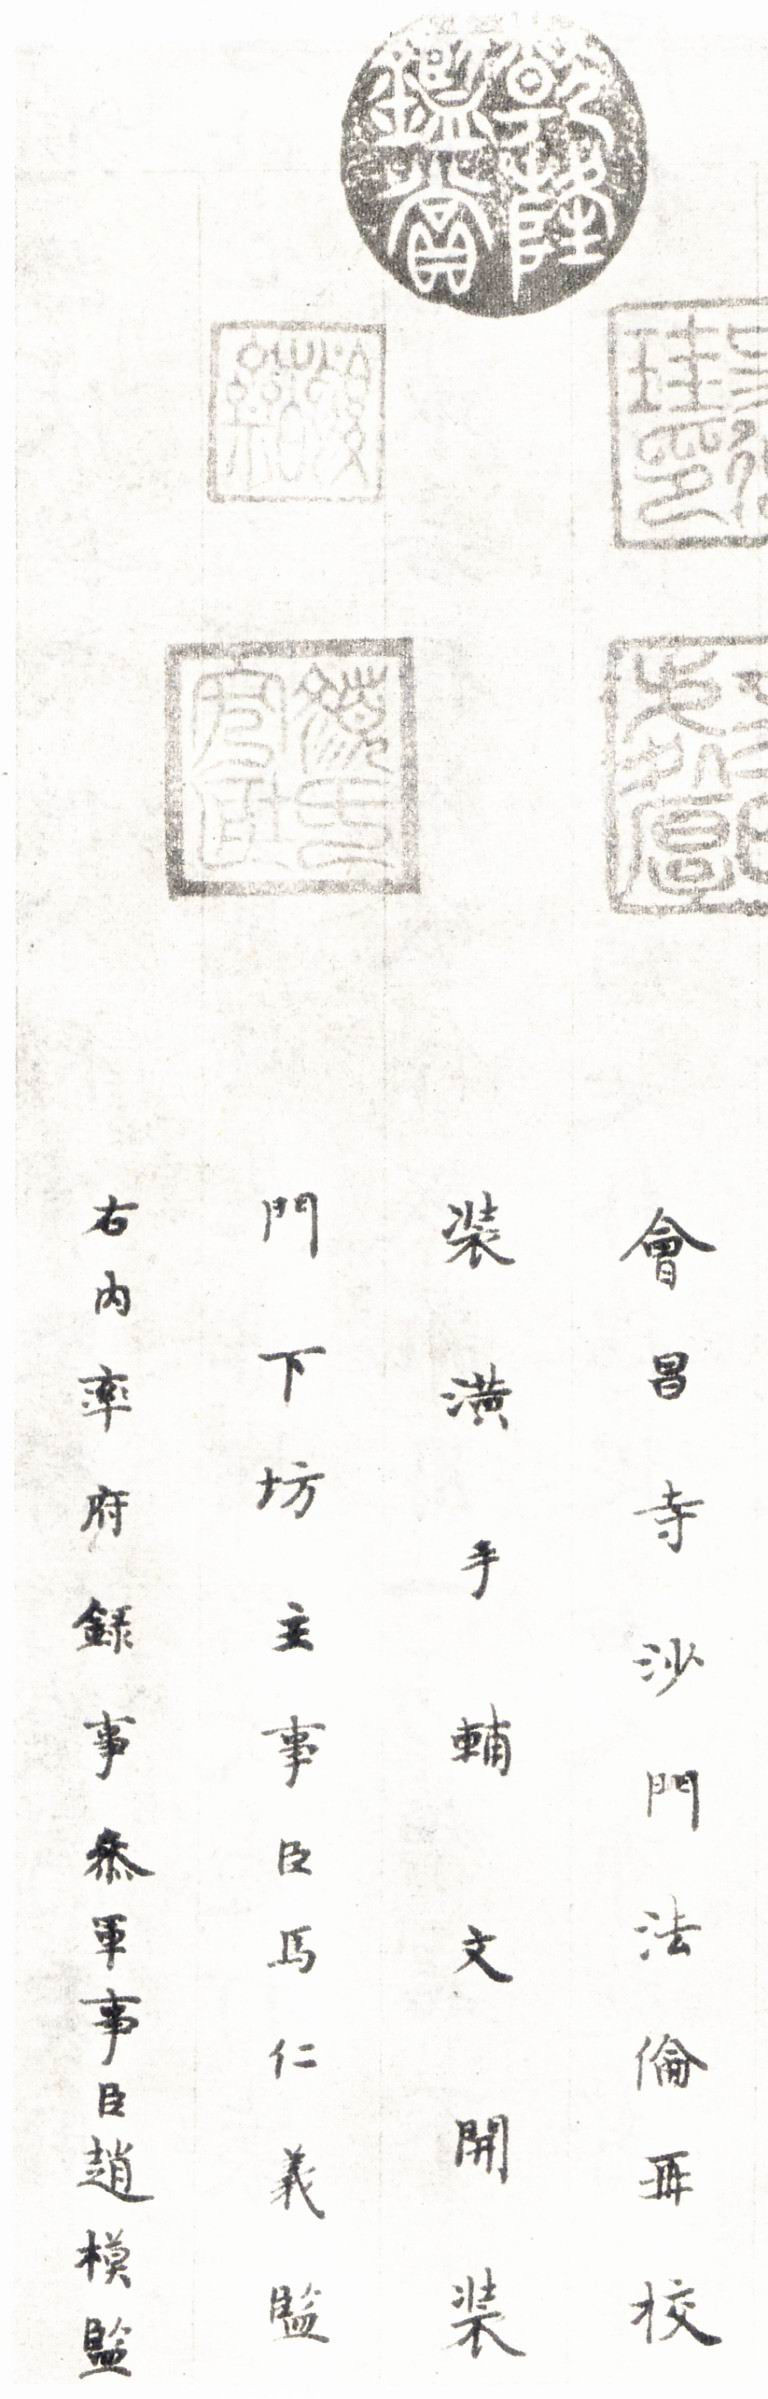 乾隆鑑賞
會昌寺沙門法倫再校
裝潢手輔文開裝
門下坊主事臣馬仁義監
右內率府錄事參軍事臣趙模監